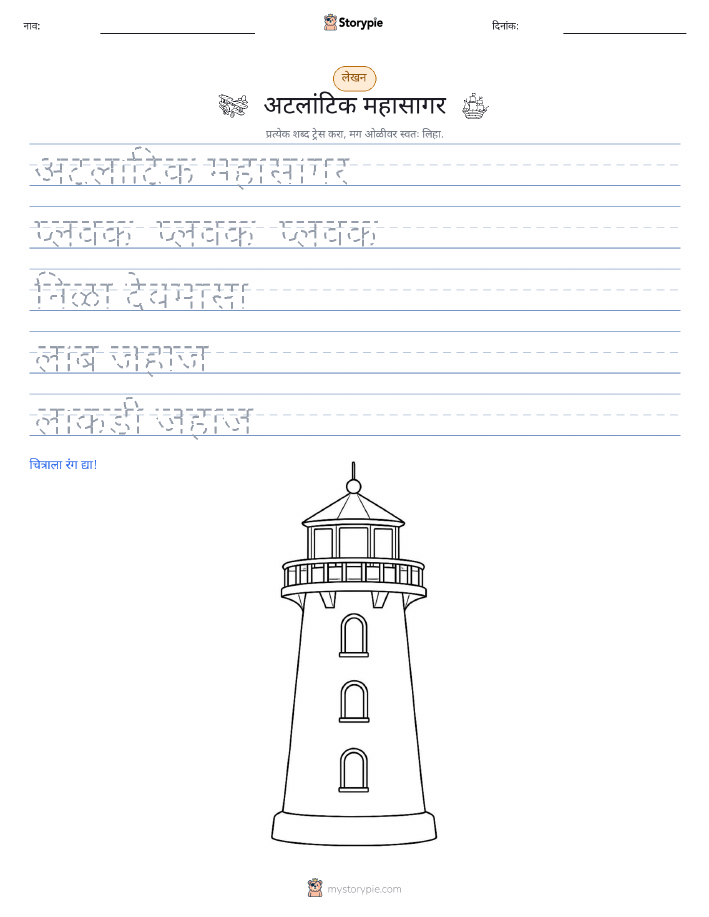 नाव:
Storypie
दिनांक:
लेखन
अटलांटिक महासागर
प्रत्येक शब्द ट्रेस करा, मग ओळीवर स्वतः लिहा.
अटलांटिक महासागर
प्लवक प्लवक प्लवक
निळा देवमासा
लांब जहाज
लाकडी जहाज
चित्राला रंग द्या!
mystorypie.com